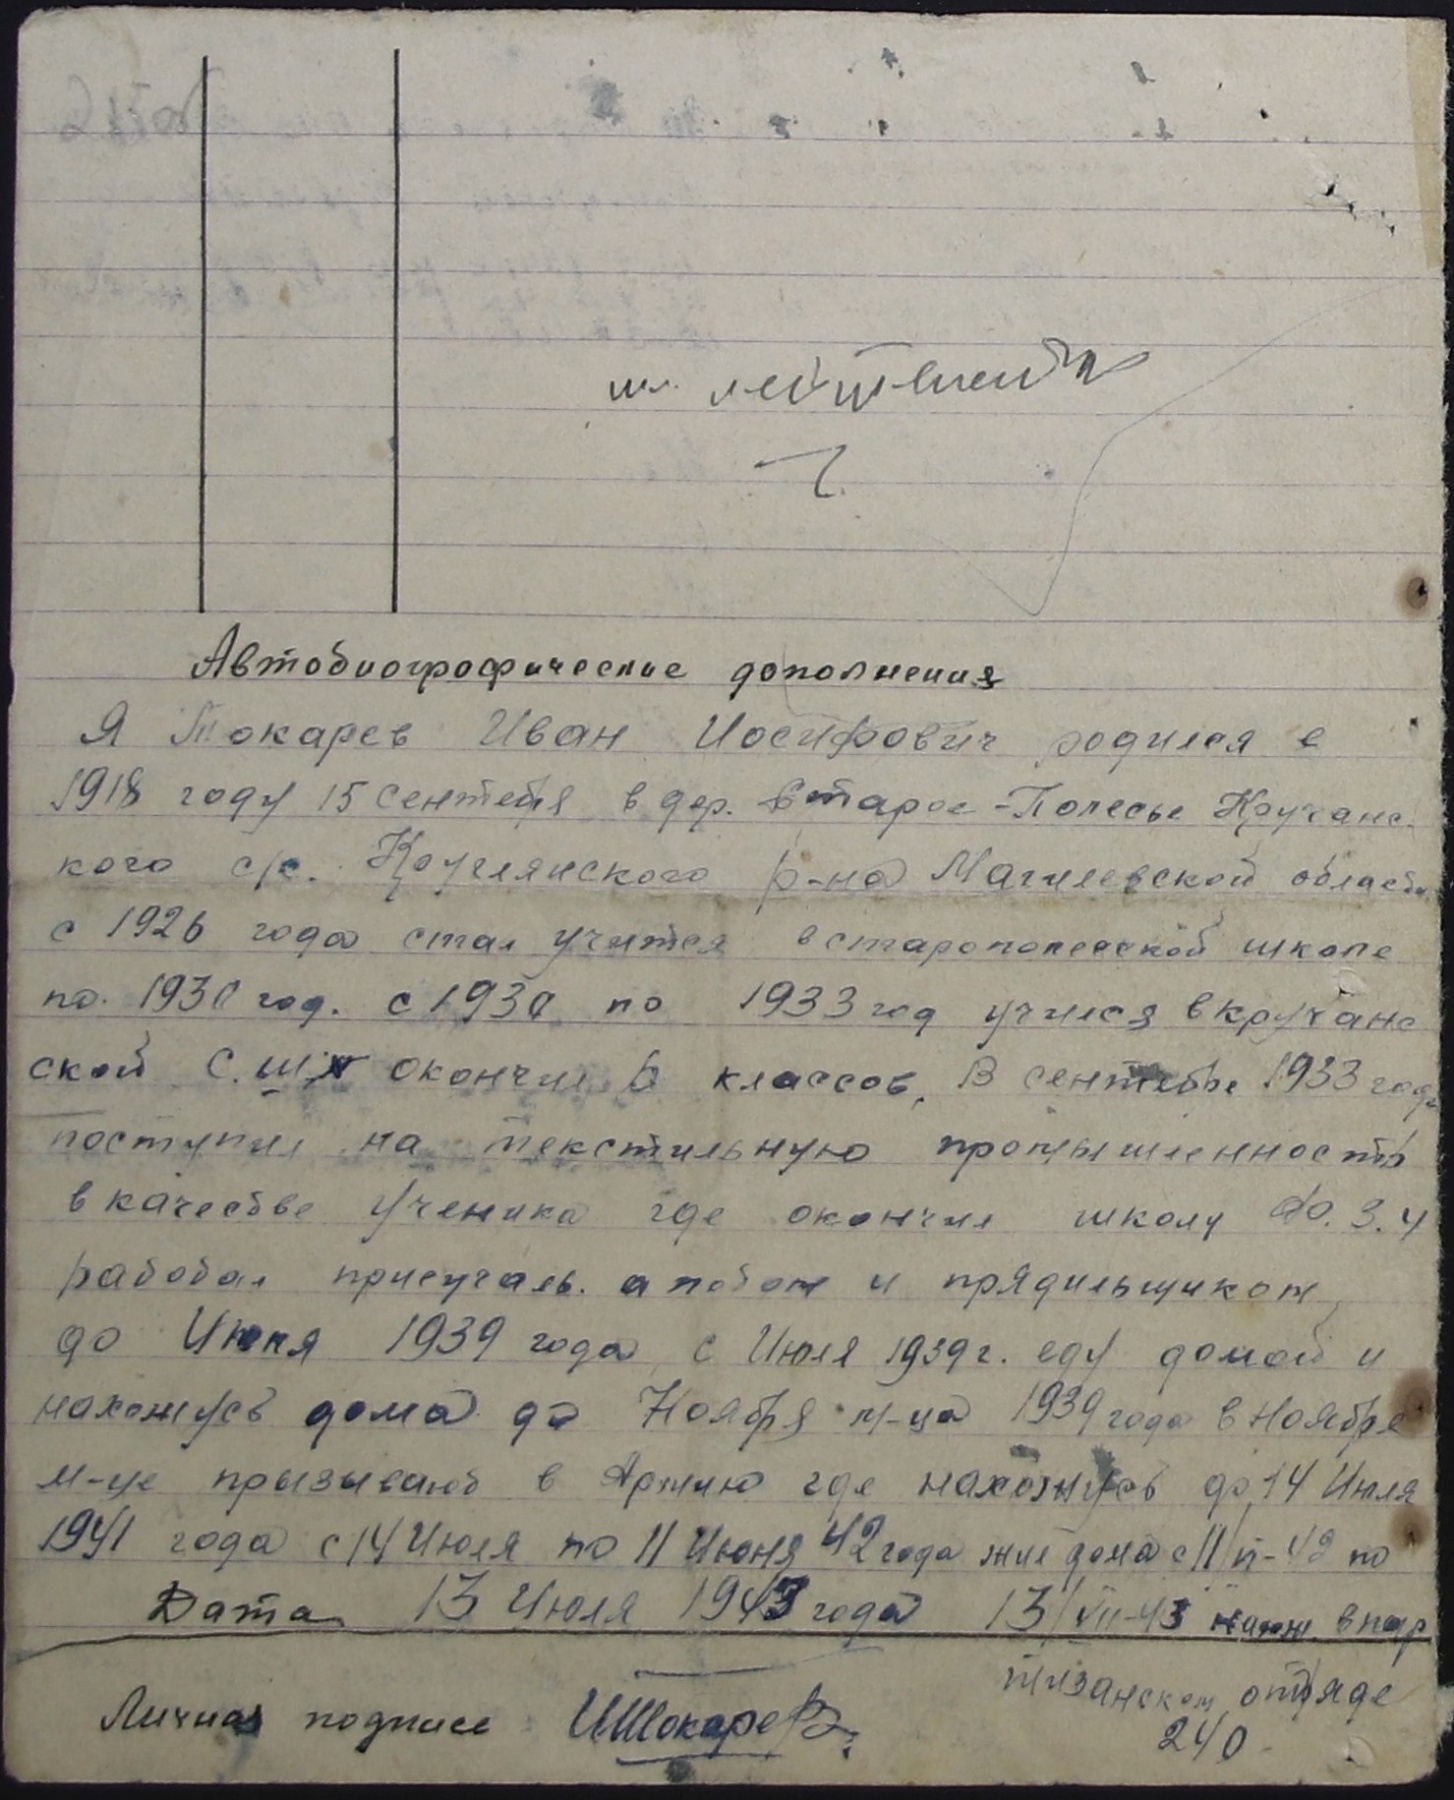 мл. лейтенант
Автобиографические дополнения
Я Токарев Иван Иосифович родился в
1918 году 15 сентебря в дер. Старое-Полесье Кручанс-
кого с/с. Круглянского р-на Магилевской области
с 1926 года стал учится в старополесской школе
по 1930 год. с 1930 по 1933 год учился в кручанс
ской С.Ш. окончил 6 классов, В сентебре 1933 года
поступил на текстильную промышленность
в качестве ученика где окончил школу Ф.З.У
работал присучаль. а потом и прядильщиком,
до Июля 1939 года, с Июля 1939 г. еду домой и
нахожусь дома до Ноября м-ца 1939 года в Ноябре
м-це призывают в Армию где нахожусь до 14 Июля
1941 года с 14 Июля по 11 Июня 42 года жил дома с 11/VI-42 по
Дата 13 Июля 1943 года 13/VII-43 нахож. в пар
тизанском отряде
240
Личная подпись ИТокарев